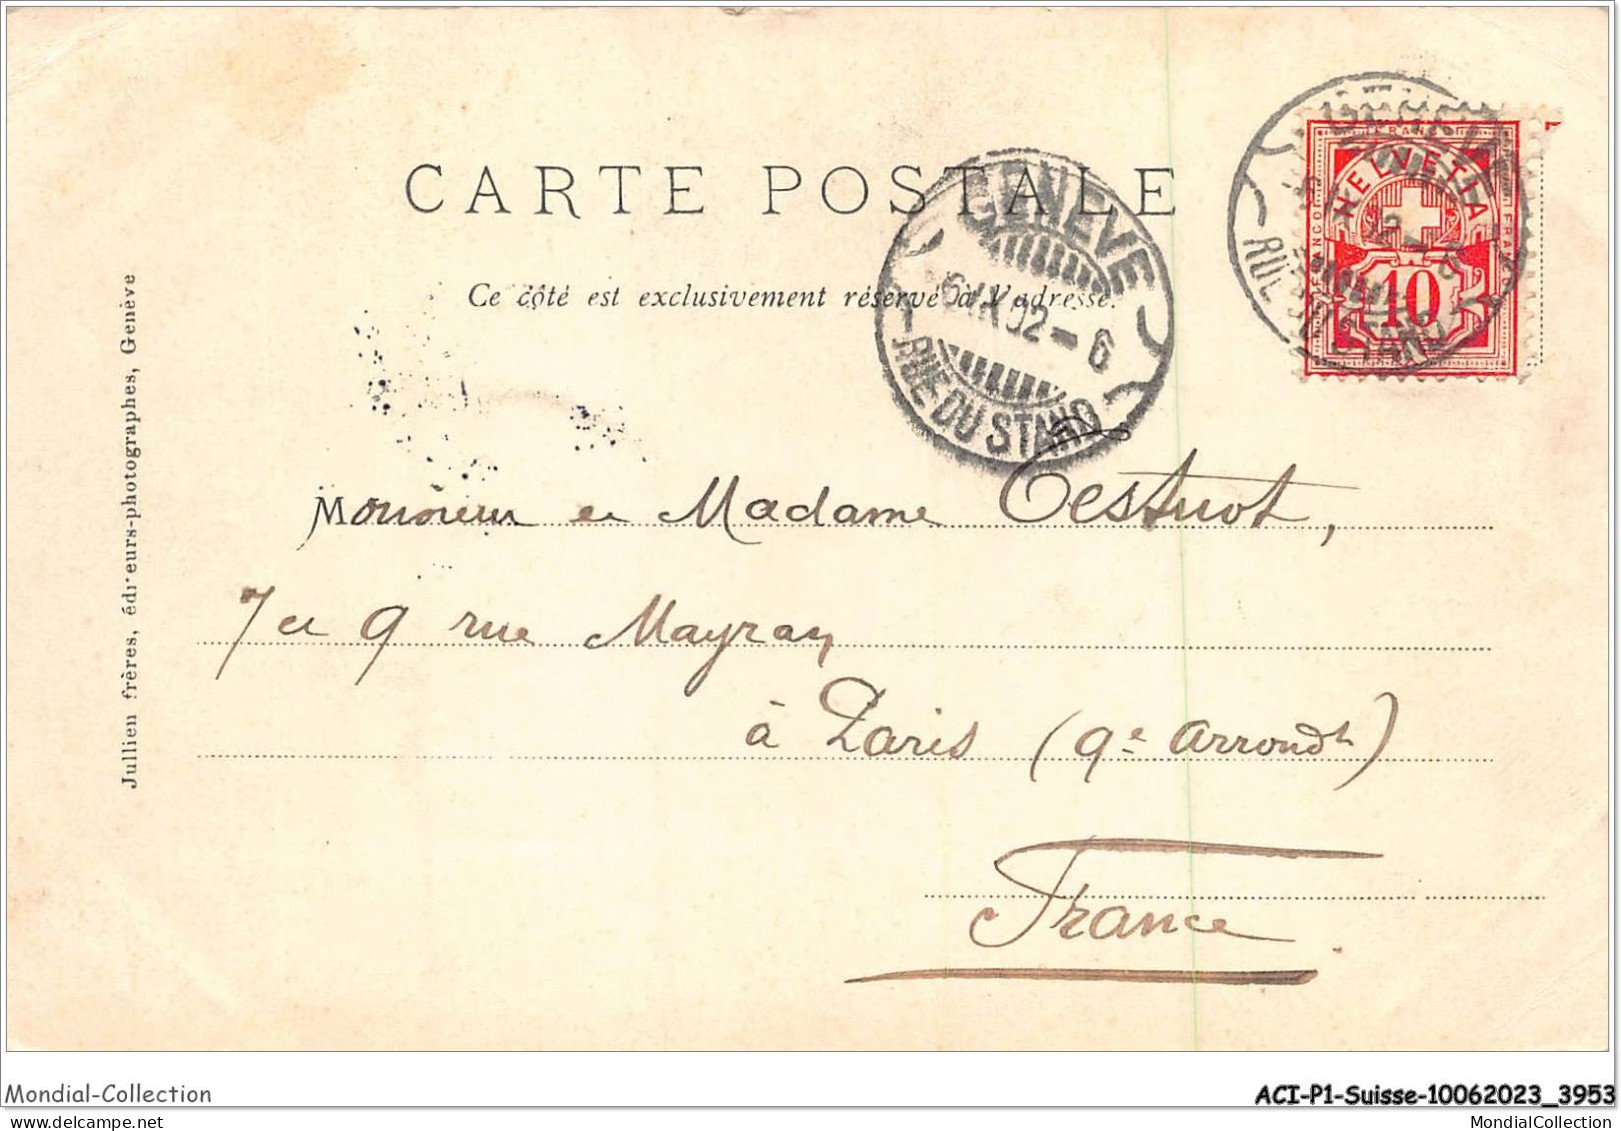 CARTE POSTALE
Ce côté est exclusivement réservé à l'adresse.
GENÈVE
6 IX 02 - 6
RUE DU STAND
FRANCO
HELVETIA
10
RUE DU STAND
Monsieur et Madame Testuot,
7 et 9 rue Mayran
à Paris (9e Arrondt)
France.
Jullien frères, éditeurs-photographes, Genève
Mondial-Collection
ACI-P1-Suisse-10062023_3953
MondialCollection
MondialCollection